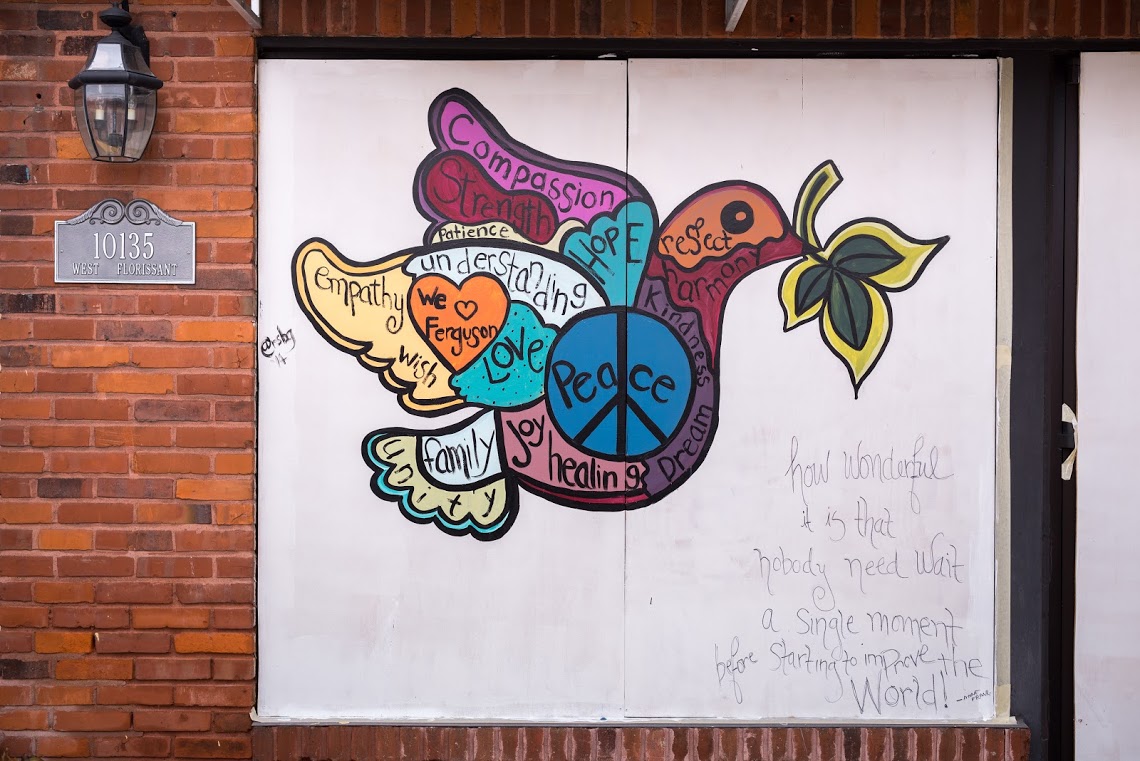 10135
WEST FLORISSANT
Compassion
Strength
Patience
HOPE
respect
harmony
understanding
empathy
We
Ferguson
wish
Love
kindness
Peace
Dream
Joy
healing
family
unity
how wonderful
it is that
nobody need wait
a single moment
before starting to improve the
World!